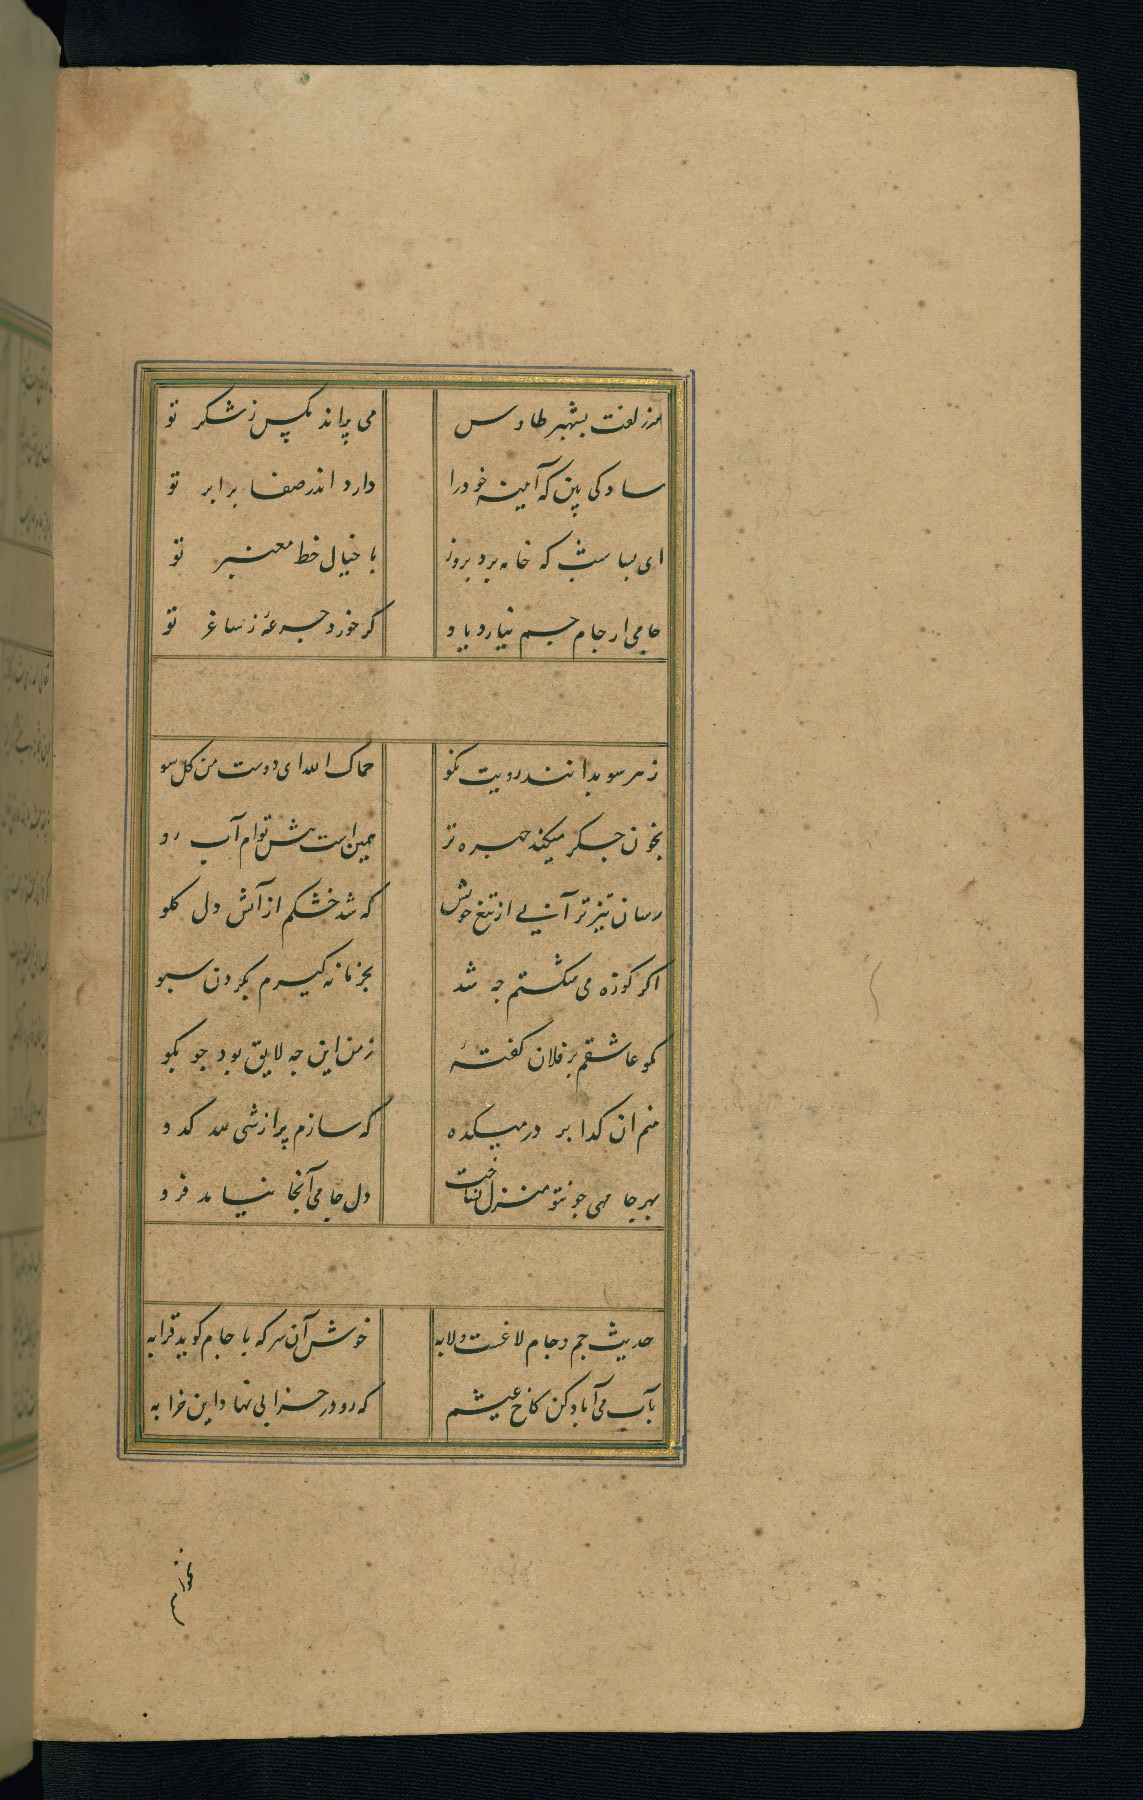 زلفت بشهپر طاوس می پراند مکس ز شکر تو
سادکی بین که آینه خود را دارد اندر صفا برابر تو
ای بسا شب که خانه برد بروز با خیال خط معنبر تو
جامی از جام جم نیارد یاد کر خورد جرعهٔ ز ساغر تو
ز هر سو بدانند رویت نکو حماک الله ای دوست من کل سو
بخون جکر میکند جهره تر همین است پیش توام آب رو
رسان تیزتر آبی از تیغ خویش که شد خشکم از آتش دل کلو
اکر کوزه می شکستم جه شد بجرمانه کیرم بکردن سبو
مکو عاشقم بر فلان کفتهٔ ز من این جه لایق بود جو بکو
منم ان کدا بر در میکده که سازم پر از شی لله کدو
بهر جا مهی جو تو منزل نساخت دل جامی آنجا نیامد فرو
حدیث جم و جام لاغست و لابه خوش آن سر که با جام کوید قرابه
بآب می آباد کن کاخ عیشم که رو در خرابی نهاد این خرابه
بخوانم